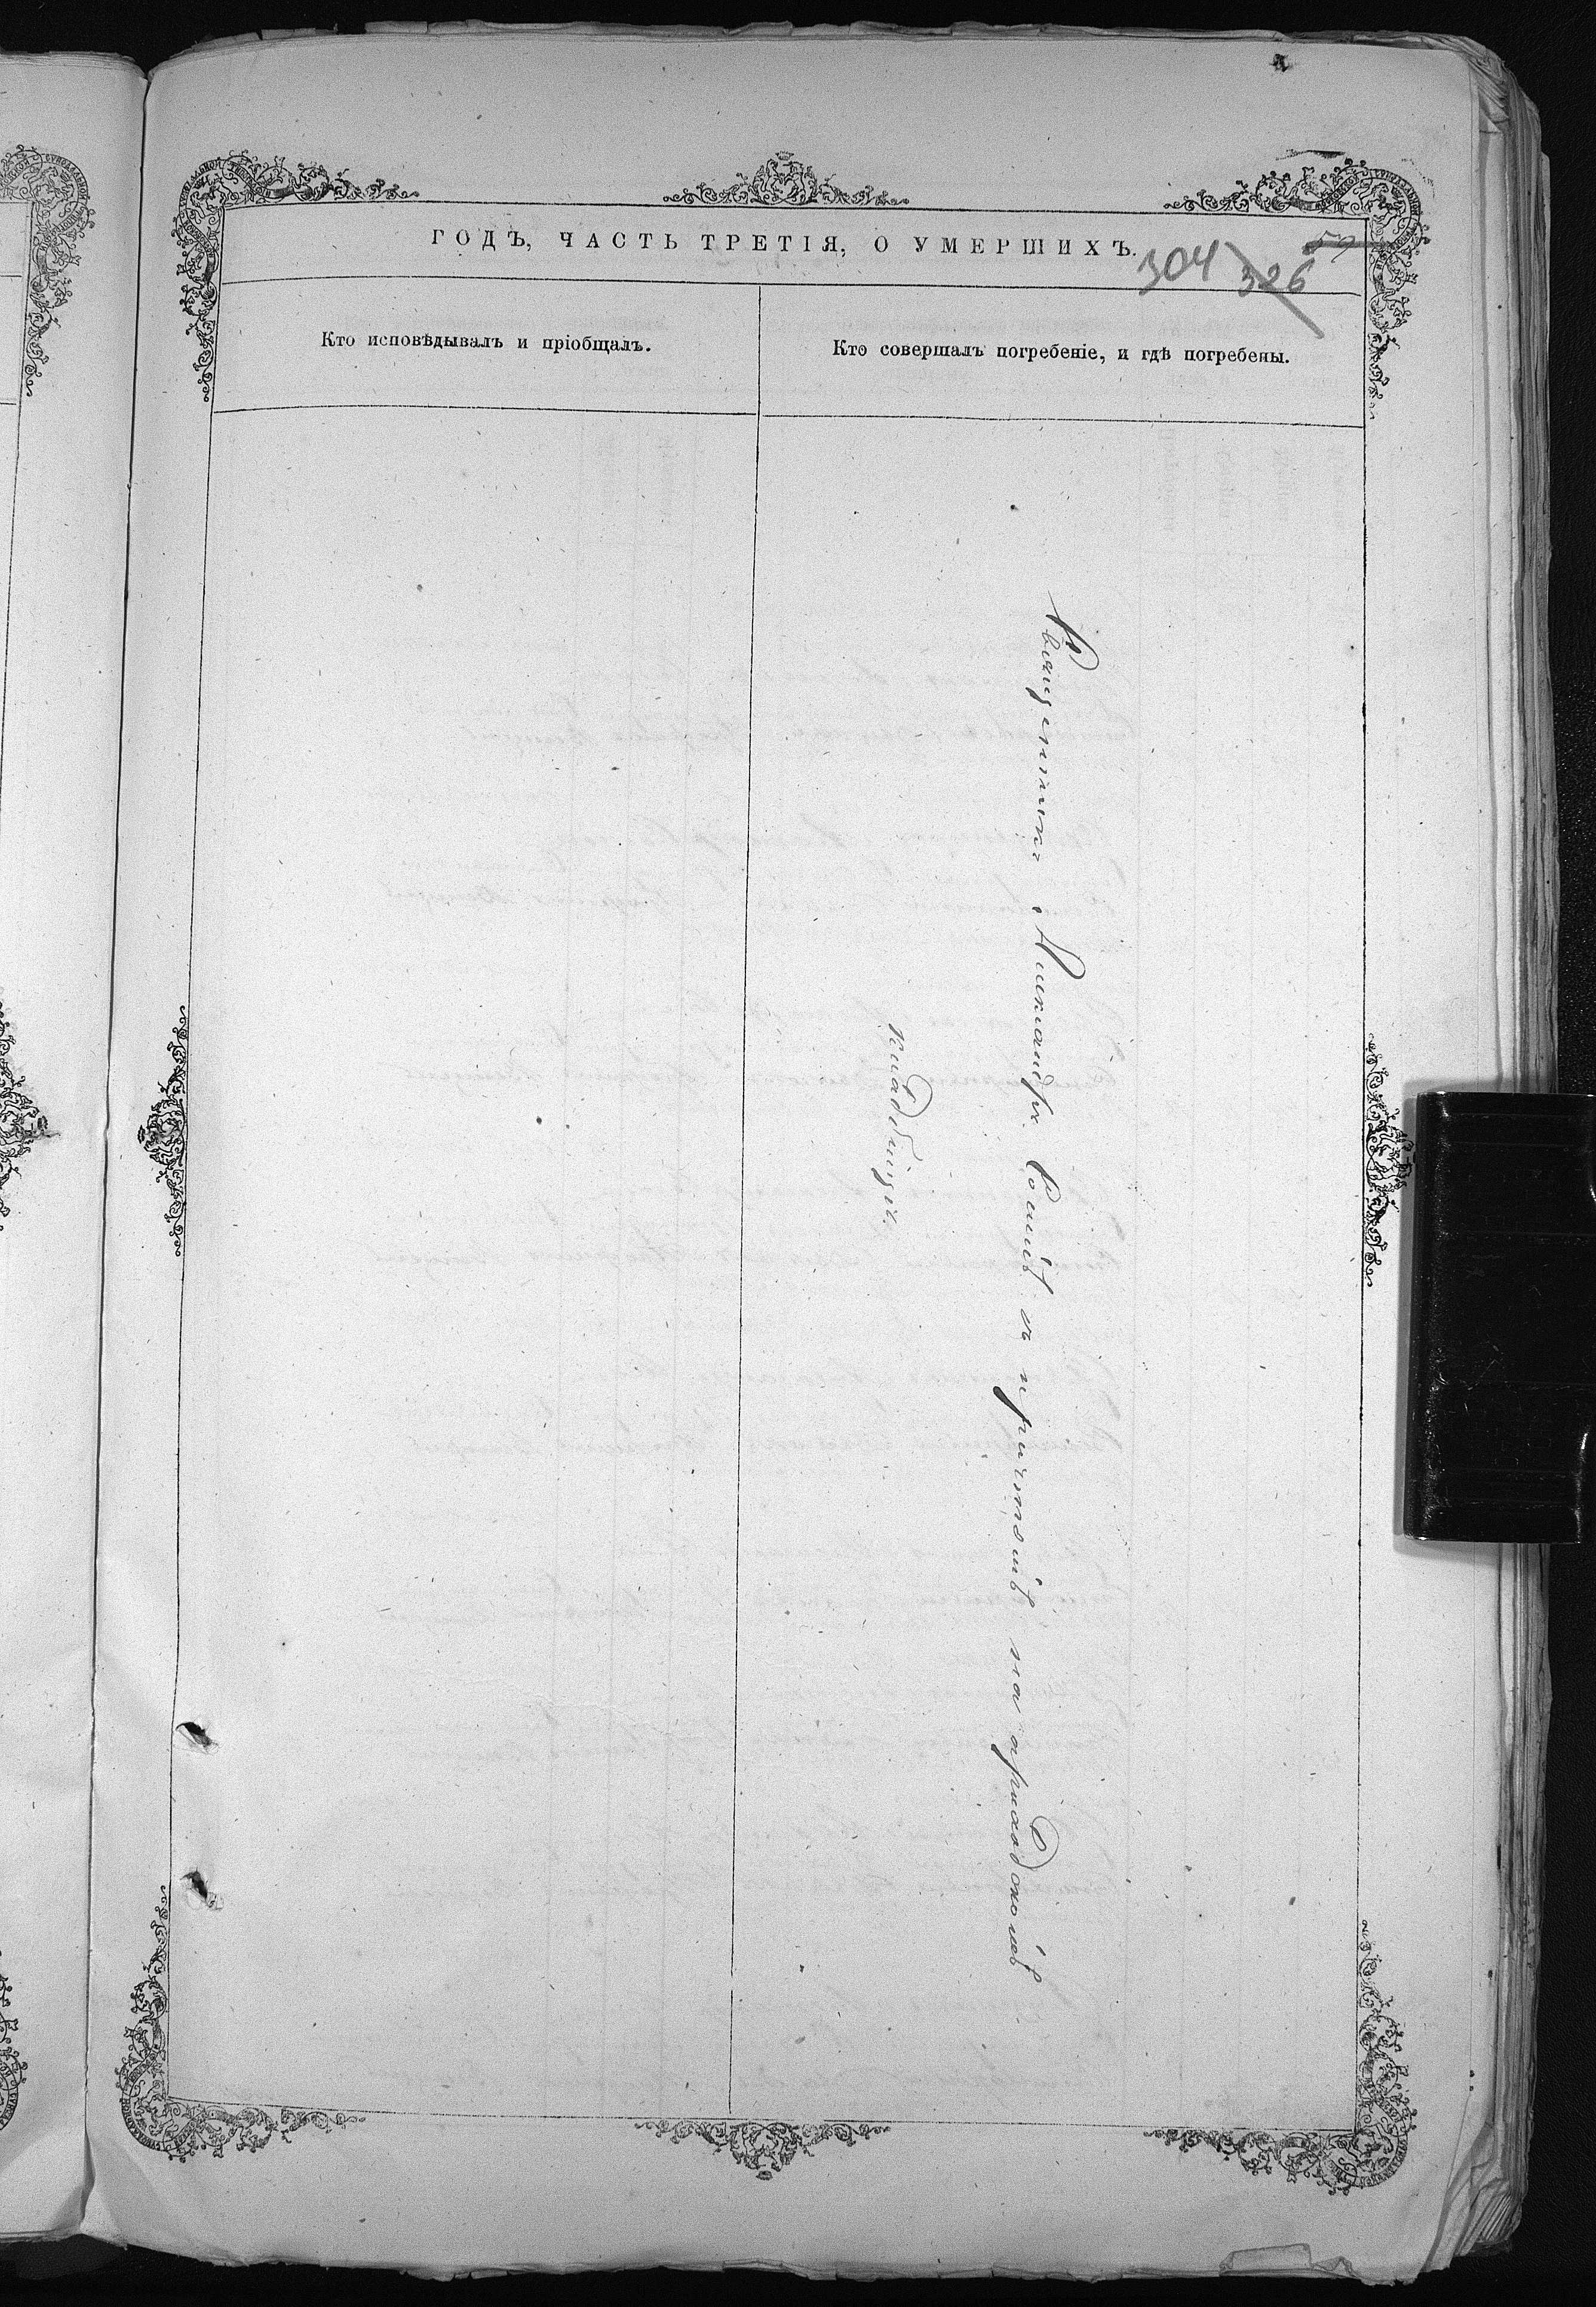 ГОДЪ, ЧАСТЬ ТРЕТІЯ, О УМЕРШИХЪ.
304 326 59
Кто исповѣдывалъ и пріобщалъ.
Кто совершалъ погребеніе, и гдѣ погребены.
Священникъ Александръ съ причтомъ на приходскомъ
кладбищѣ.